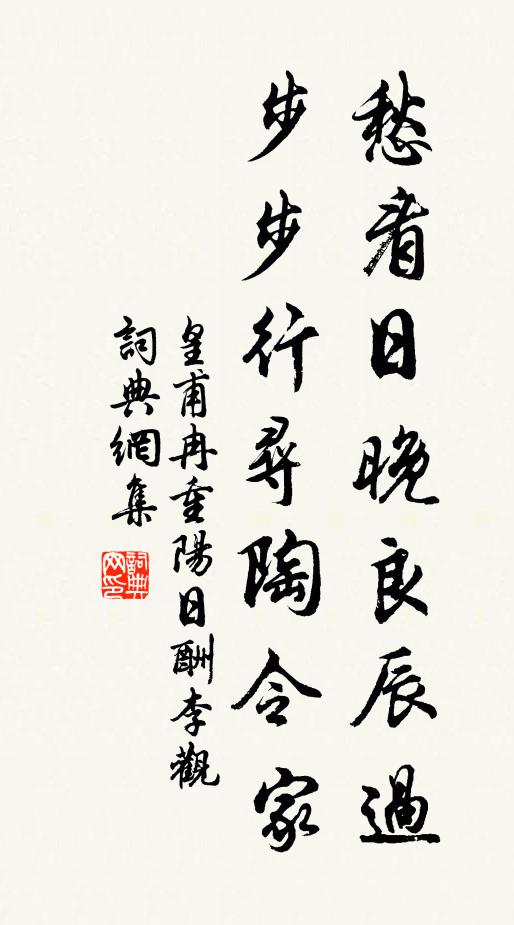 愁看日晚良辰過
步步行尋陶令家
皇甫冉重陽日酬李觀
詞典網集
詞典网印